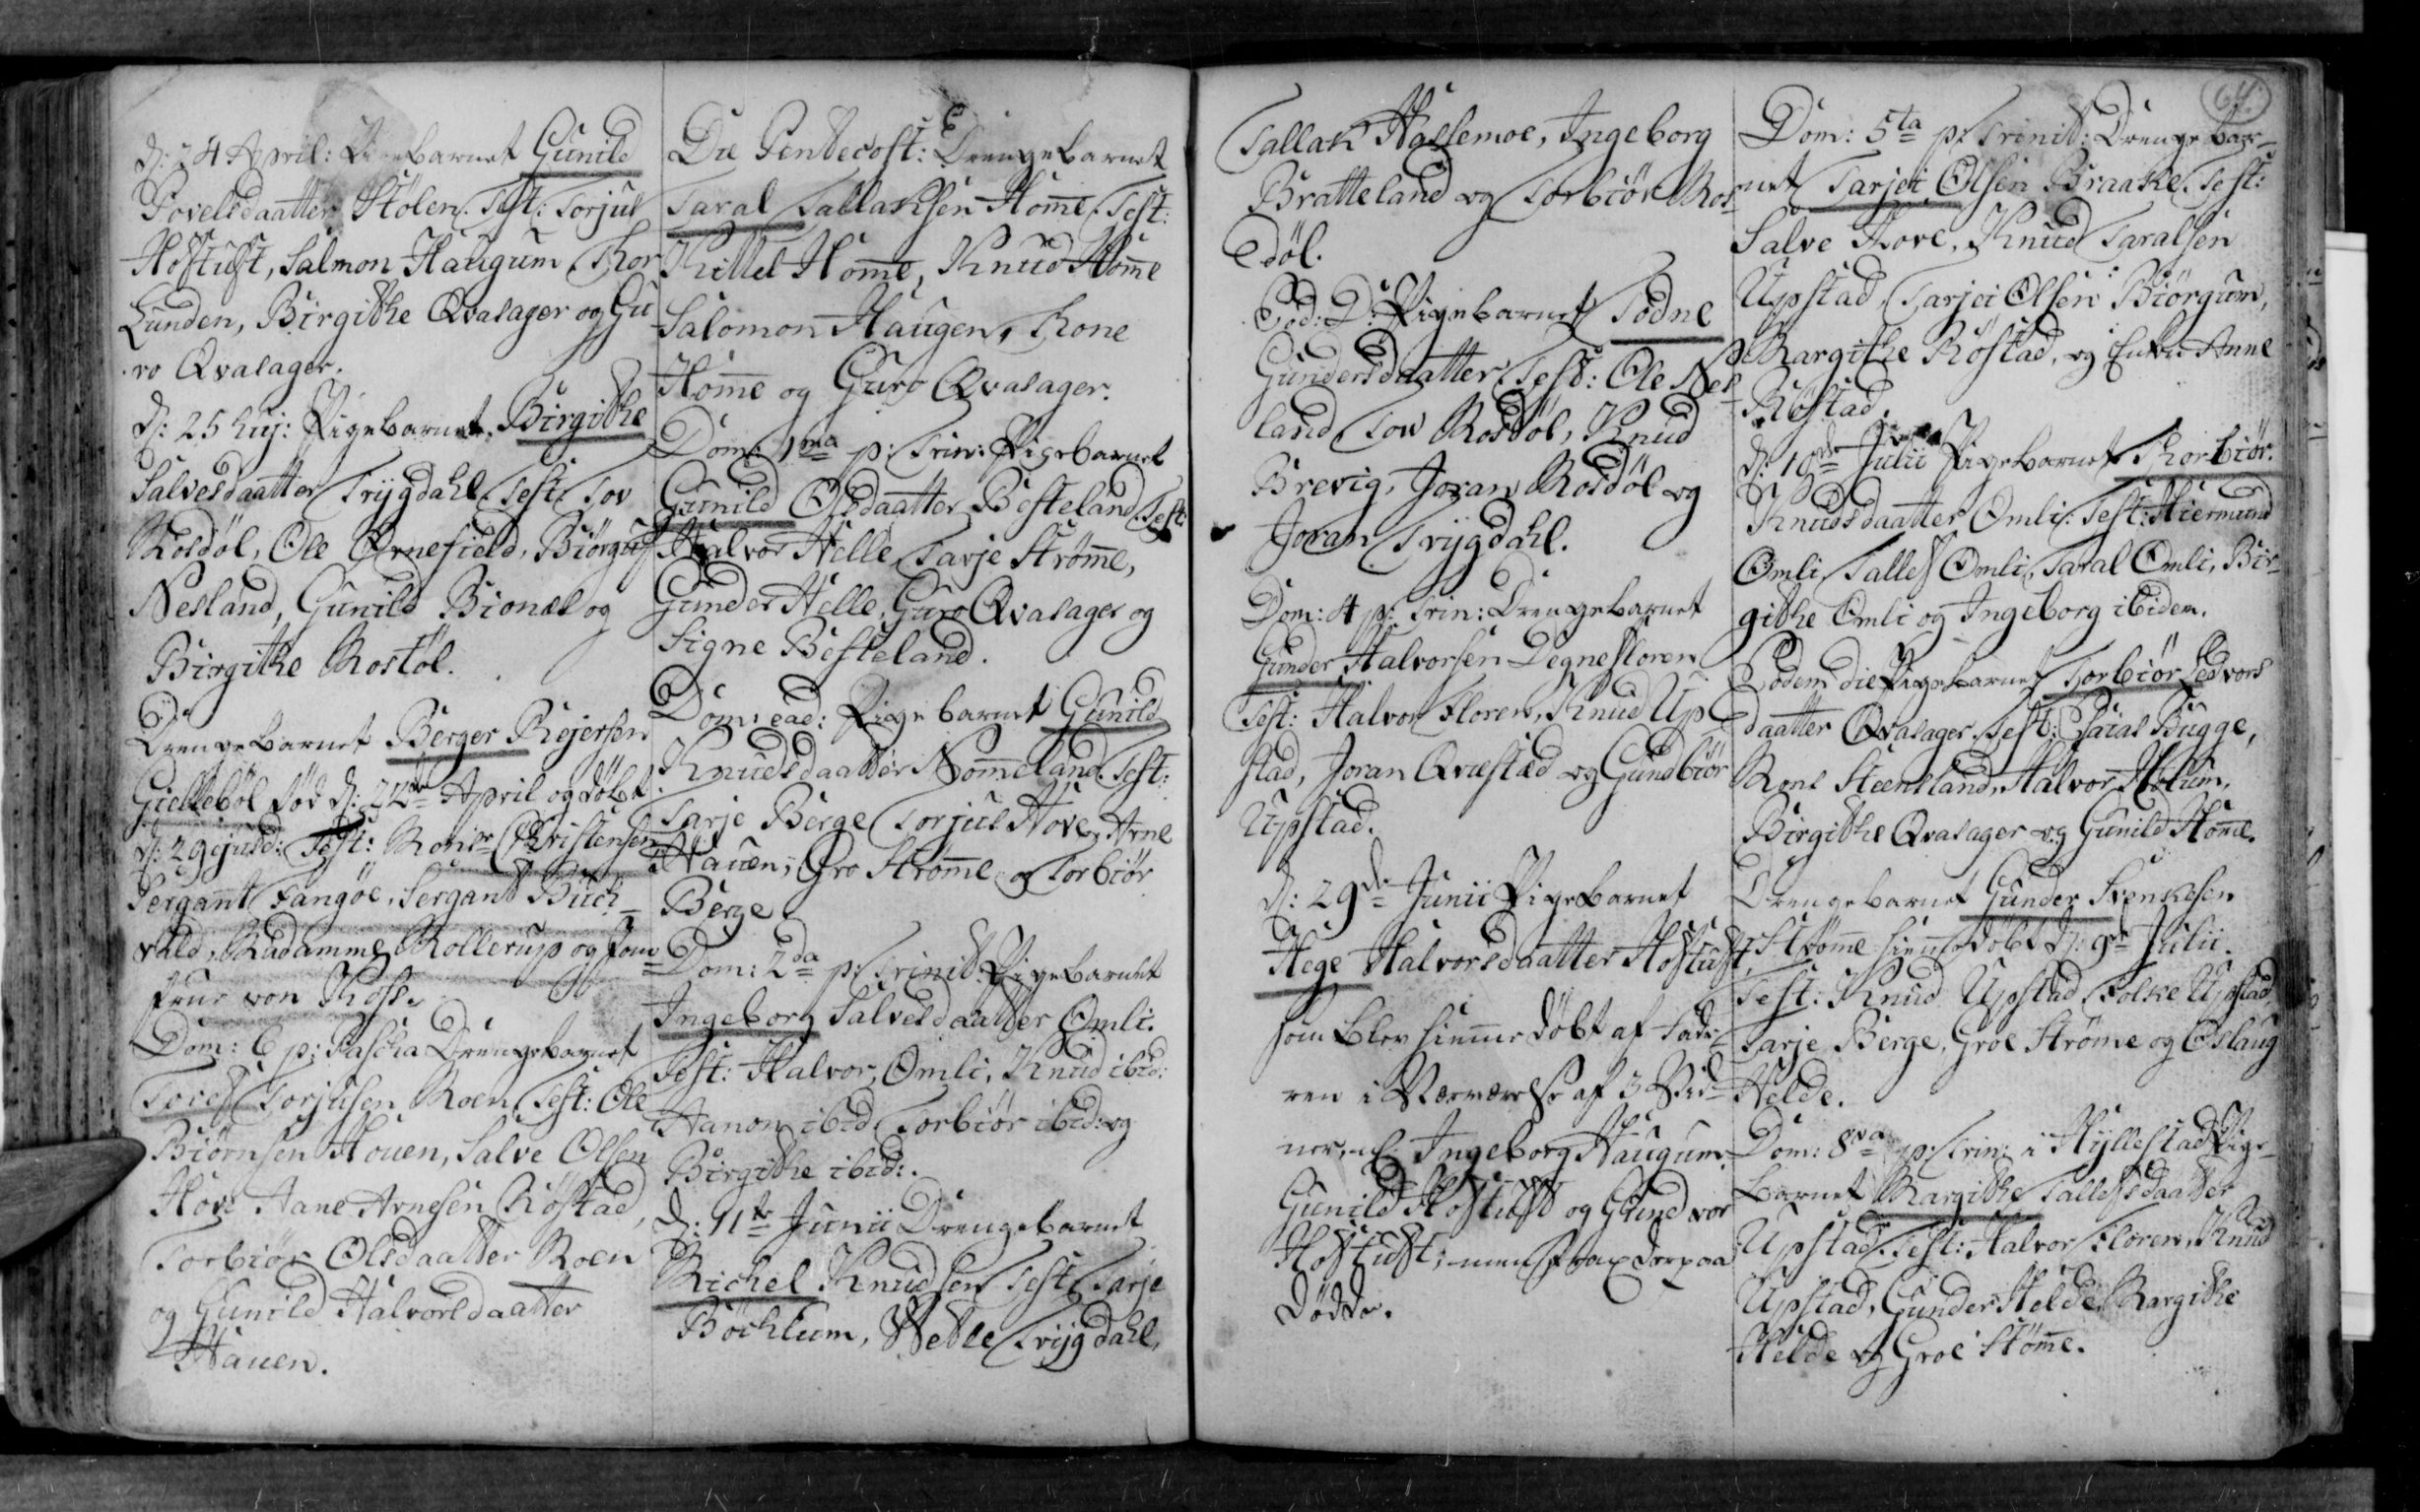 d: 24 April: Pigebarnet Gunild
Povelsdaatter Stölen. Test: Torjus
Hostust, Salmon Haugum, Thor
Lunden, Birgithe Qvasager og Gu
ro Qvasager.
d: 25 huj: Pigebarnet Birgithe
Salvesdaatter Trygdahl. Test: Tov
Rosdöl, Ole Ørnefield, Biörguf
Nesland, Gunild Bionæs og
Birgithe Rostöl.
Drengebarnet Berger Rejersen
Giellebøl fød d: 22de April og döbt
d: 29 ejusd: Test: Monsr Christensen
Sergannt Fangöe, Sergant Buch
vald, Madamme Mollerup og Jom
frue von Koss.
Dom: 6 p: Pascha Drengebarnet
Toref Torjusen Roen. Test: Ole
Biörnsen Houen, Salve Olsen
Hove Aane Arnesen Röstad,
Torbiör Olsdaatter Roen
og Gunild Halvorsdaatter
Hauen.
Die Pentecost: Drengebarnet
Taral Tallaksen Homme. Test:
Kittel Homme, Knud Homme
Salomon Haugen, Thone
Homme og Guro Qvasager.
Dom: 1ma p: Trin: Pigebarnet
Gunild Olsdaatter Besteland. Test:
Halvor Helle, Tarje Strømme,
Gunder Helle, Guro Qvasager og
Signe Besteland.
Dom: ead: Pigebarnet Gunild
Knudsdaatter Nommeland. Test:
Tarje Berge, Torjus Hove, Arne
Hauen, Gro Strømme og Torbiör
Berge.
Dom: 2da p: Trinit: Pigebarnet
Ingeborg Salvesdaatter Omli.
Test: Halvor Omli, Knud ibid:
Aanon ibid: Torbiör ibid: og
Birgithe ibid:.
d: 11te Junii Drengebarnet
Michel Knudsen Test: Tarje
Böchlum, Wetle Trygdahl,
Tallak Hallemoe, Ingeborg
Bratteland og Torbiör Ros-
döl.
Eod: D: Pigebarnet Todne
Gundersdaatter. Test: Ole Nes-
land Tov Rosdöl, Knud
Brevig, Joran Rosdöl og
Joran Trygdahl.
Dom: 4 p: Trin: Drengebarnet
Gunder Halvorsen Degnefloren
Test: Halvor Floren, Knud Up-
stad, Joran Qvæstad og Gundbiör
Upstad.
d: 29de Junii Pigebarnet
Hege Halvorsdaatter Hostust,
som blev hiemme döbt af Fade-
ren i Nærværelse af 3 Vid-
ner, nl: Ingeborg Haugum
Gunild Hostust og Gundvor
Hostust; men strax derpaa
dödde.
64.
Dom: 5ta p: Trinit: Drengebar-
net Tarjei Olsen Braake. Test:
Salve Hove, Knud Taralsen
Upstad, Tarjei Olsen Biörgum,
Margithe Röstad, og Enken Anne
Röstad.
d: 10de Julii Pigebarnet Thorbiör
Knudsdaatter Omli: Test: Hiermund
Omli, Tallef Omli, Taral Omli, Bir-
githe Omli og Ingeborg ibidem.
Eodem die Pigebarnet Torbiör Edvors
daatter Qvasager. Test: Esaias Bugge,
Mons Steensland, Halvor Holum,
Birgithe Qvasager og Gunild Homme.
Drengebarnet Gunder Svenkesen
Strømme hiemmedöbt d: 9de Julii.
Test: Knud Upstad, Folke Upstad,
Tarje Berge, Groe Strømme og Oslaug
Helde.
Dom: 8va p: Trin: i Hyllestad Pige-
barnet Margithe Tallefsdaatter
Upstad. Test: Halvor Floren, Knud
Upstad, Gunder Helde, Margithe
Helde og Groe Stömme.